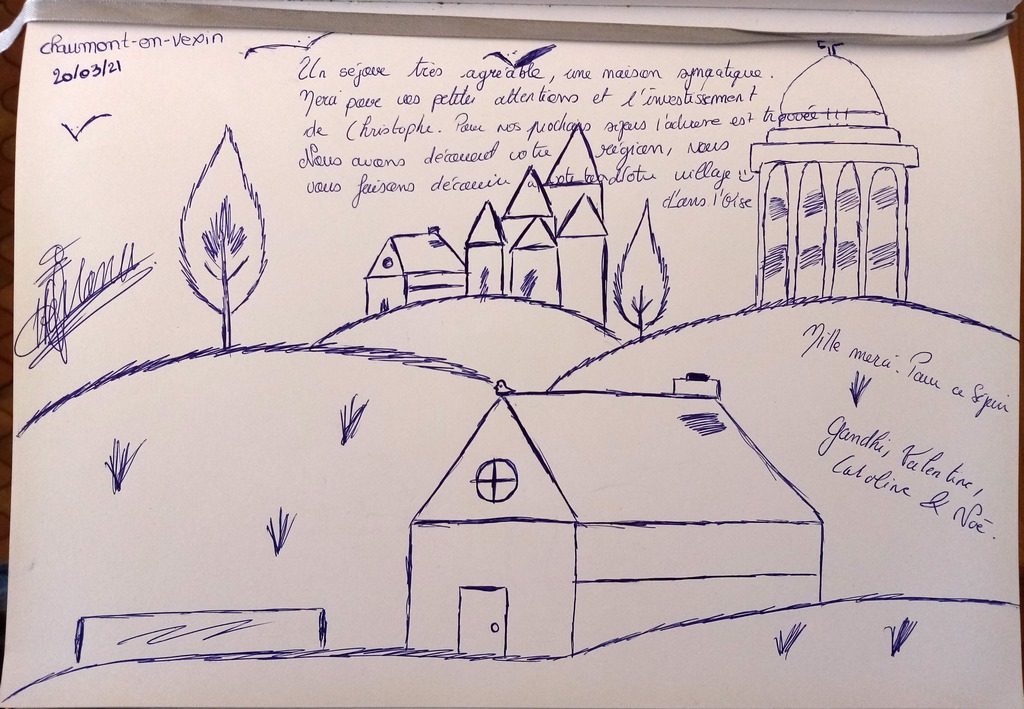 Chaumont-en-Vexin
20/03/21
Un séjour très agréable, une maison sympatique.
Merci pour vos petites attentions et l'investissement
de Christophe. Pour nos prochains séjours l'adresse est trouvée !!!
Nous avons découvert votre région, nous
vous faisons découvrir village :)
dans l'Oise
Mille merci. Pour ce séjour
Gandhi, Valentine,
Caroline & Noé.